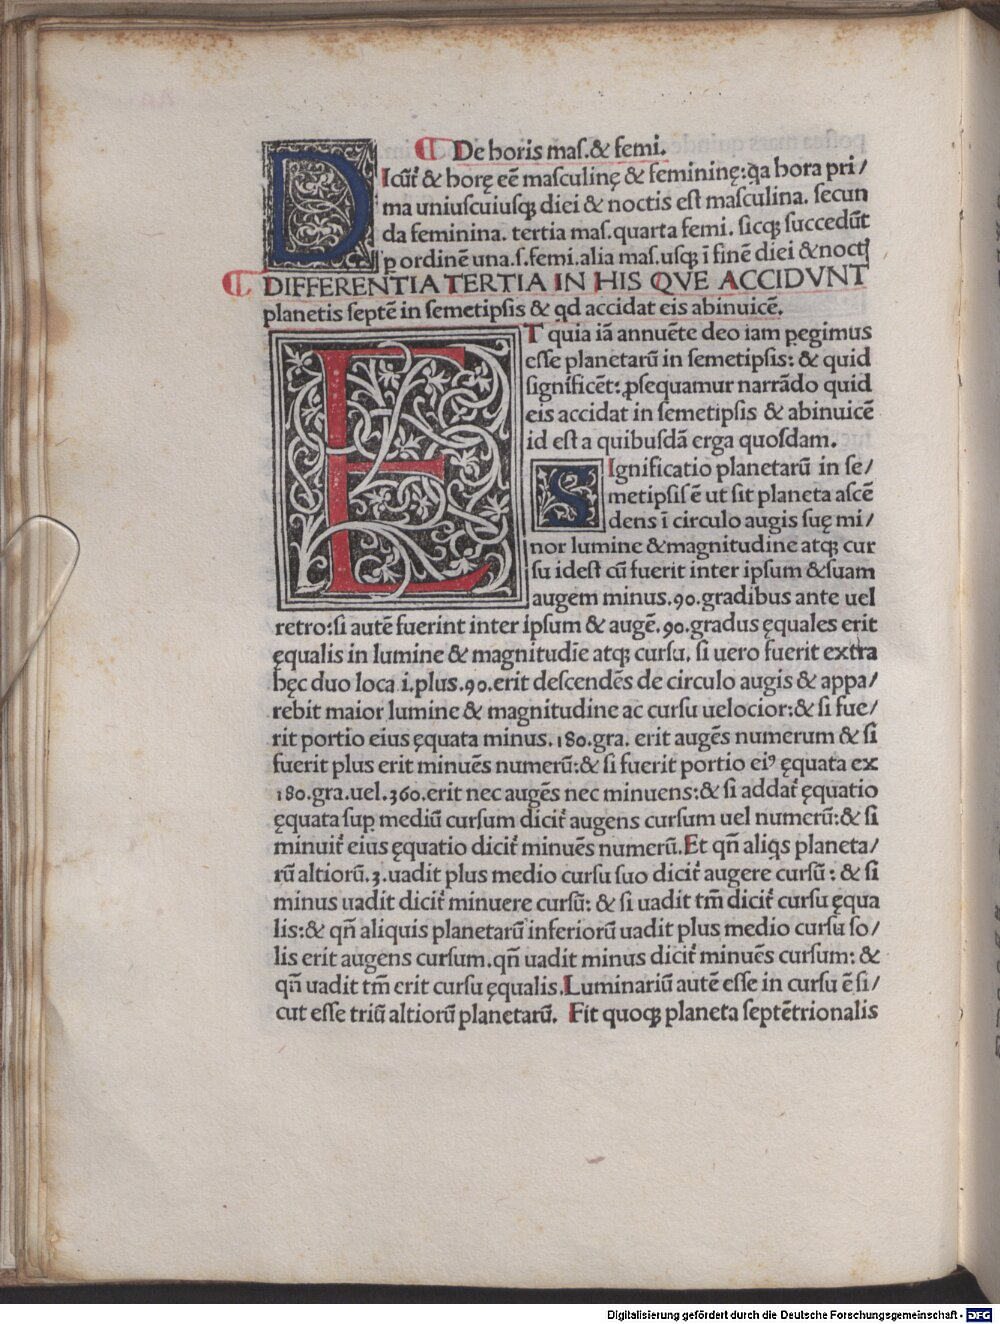 De horis mas.& femi.
DIcūt̉ & horę eē masculinę & femininę:q̄a hora pri/
ma uniuscuiusq; diei & noctis est masculina. secun
da feminina. tertia mas.quarta femi. sicq; succedūt
ꝑ ordinē una.s.femi.alia mas.usq; ī finē diei & nocti
DIFFERENTIA TERTIA IN HIS QVE ACCIDVNT
planetis septē in semetipsis & qd accidat eis abinuicē.
ET quia iā annuēte deo iam ꝑegimus
esse planetarū in semetipsis: & quid
significēt: ꝓsequamur narrādo quid
eis accidat in semetipsis & abinuicē
id est a quibusdā erga quosdam.
SIgnificatio planetarū in se/
metipsis ē ut sit planeta ascē
dens ī circulo augis suę mi/
nor lumine & magnitudine atq; cur
su idest cū fuerit inter ipsum & suam
augem minus.90.gradibus ante uel
retro:si autē fuerint inter ipsum & augē.90.gradus ęquales erit
ęqualis in lumine & magnitudīe atq; cursu. si uero fuerit extra
hęc duo loca i.plus.90.erit descendēs de circulo augis & appa/
rebit maior lumine & magnitudine ac cursu uelocior:& si fue/
rit portio eius ęquata minus.180.gra. erit augēs numerum & si
fuerit plus erit minuēs numerū:& si fuerit portio eiꝰ ęquata ex
180.gra.uel.360.erit nec augēs nec minuens:& si addat̉ ęquatio
ęquata suꝑ mediū cursum dicit̉ augens cursum uel numerū:& si
minuit̉ eius ęquatio dicit̉ minuēs numerū.Et qn̄ aliq̇s planeta/
rū altiorū.3.uadit plus medio cursu suo dicit̉ augere cursū: & si
minus uadit dicit̉ minuere cursū: & si uadit tm̄ dicit̉ cursu ęqua
lis:& qn̄ aliquis planetarū inferiorū uadit plus medio cursu so/
lis erit augens cursum.qn̄ uadit minus dicit̉ minuēs cursum: &
qn̄ uadit tm̄ erit cursu ęqualis.Luminariū autē esse in cursu ē si/
cut esse triū altiorū planetarū. Fit quoq; planeta septētrionalis
Digitalisierung gefördert durch die Deutsche Forschungsgemeinschaft - DFG